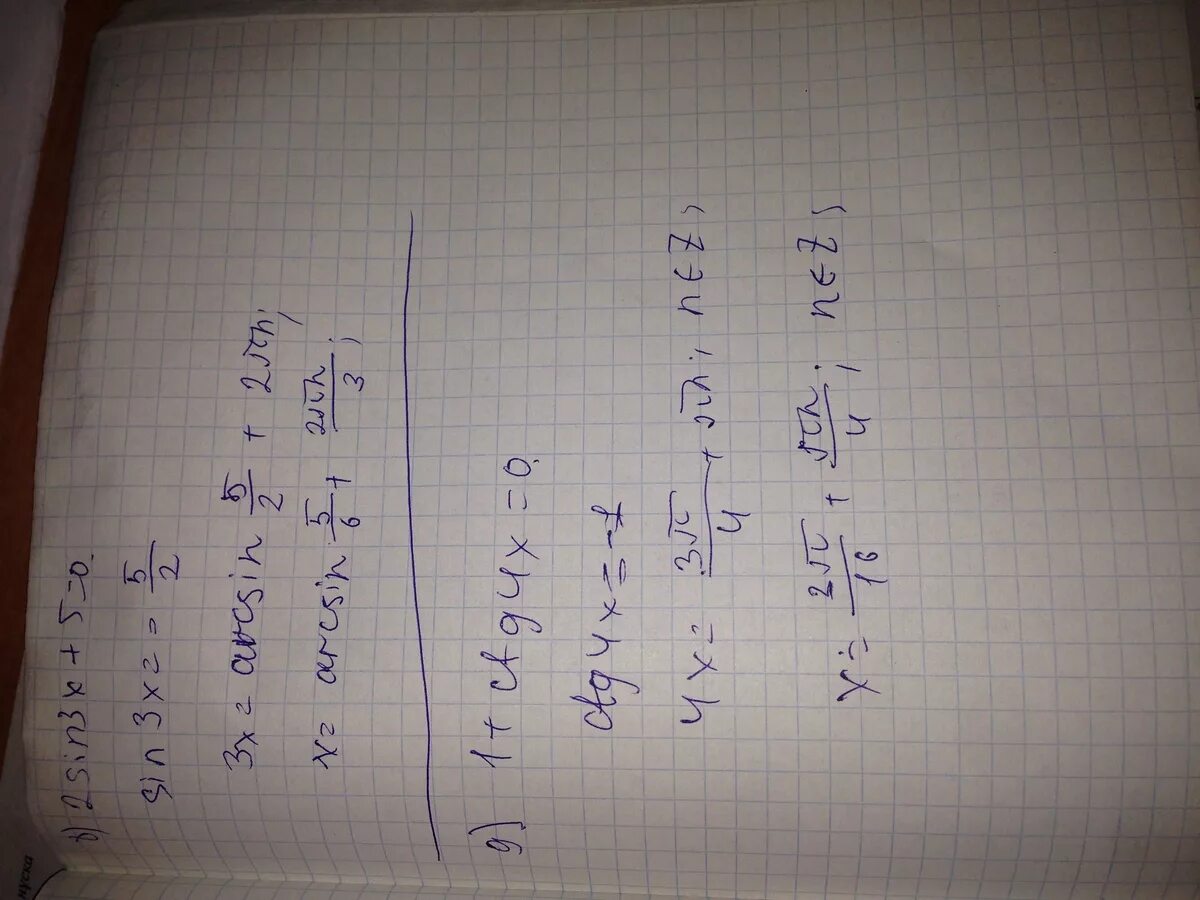 в) 2sin3x + 5 = 0.
sin 3x = - 5/2
3x = arcsin 5/2 + 2πn;
x = arcsin 5/6 + 2πn/3;
д) 1 + ctg 4x = 0.
ctg 4x = -1
4x = 3π/4 + πn; n ∈ Z;
x = 2π/16 + πn/4; n ∈ Z;
нуска